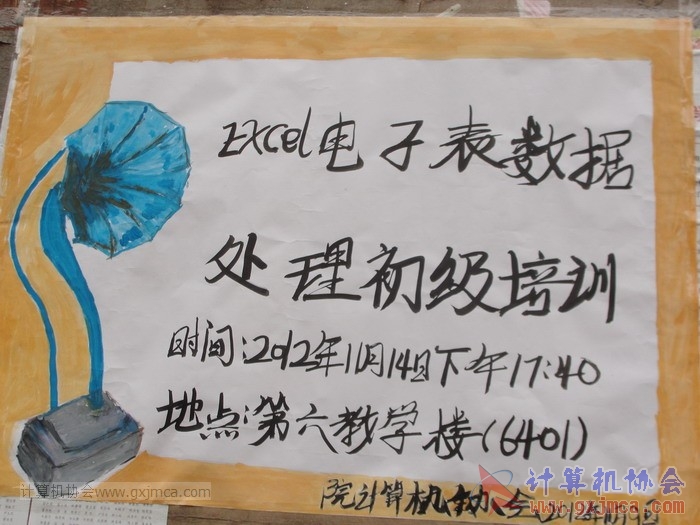 Excel电子表数据
处理初级培训
时间:2012年11月14日下午17:40
地点:第六教学楼(6401)
院计算机协会
计算机协会www.gxjmca.com
计算机协会
www.gxjmca.com